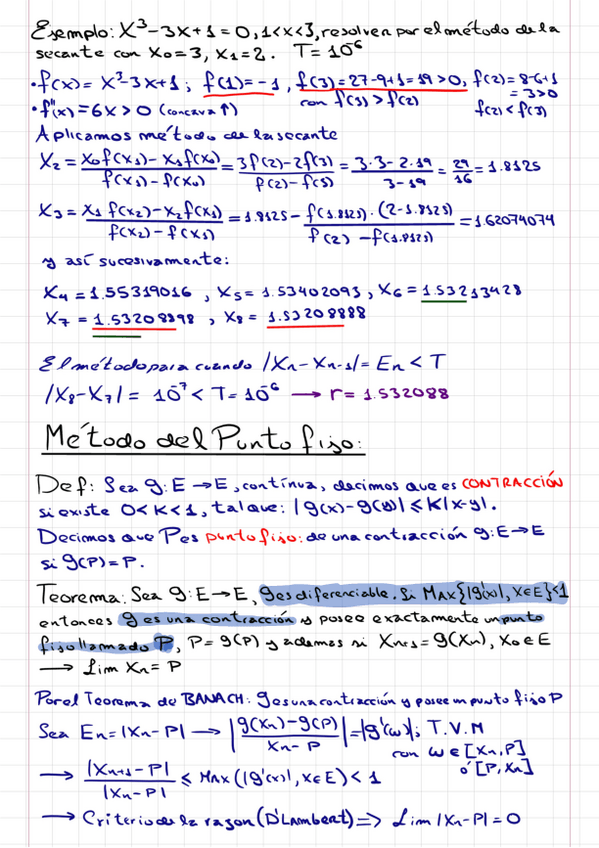 Ejemplo: X³-3x+1=0, 1<x<3, resolver por el método de la
secante con X₀=3, X₁=2. T=10⁻⁶
• f(x)= X³-3x+1; f(1)=-1, f(3)=27-9+1=19>0, f(2)=8-6+1
=3>0
• f''(x)=6x>0 (concava↑) con f(3)>f(2) f(2)<f(3)
Aplicamos método de la secante
X₂ = (X₀f(X₁)-X₁f(X₀))/(f(X₁)-f(X₀)) = (3f(2)-2f(3))/(f(2)-f(3)) = (3·3-2·19)/(3-19) = 29/16 = 1.8125
X₃ = (X₁f(X₂)-X₂f(X₁))/(f(X₂)-f(X₁)) = 1.8125 - (f(1.8125)·(2-1.8125))/(f(2)-f(1.8125)) = 1.62074074
y así sucesivamente:
X₄ = 1.55319016, X₅ = 1.53402093, X₆ = 1.53213428
X₇ = 1.53208898, X₈ = 1.53208888
El método para cuando |Xn-Xn-1|= En < T
|X₈-X₇| = 10⁻⁷ < T=10⁻⁶ → r= 1.532088
Método del Punto fijo:
Def: Sea g: E→E, contínua, decimos que es CONTRACCIÓN
si existe 0<K<1, tal que: |g(x)-g(y)| ≤ K|x-y|.
Decimos que P es punto fijo: de una contracción g: E→E
si g(P)=P.
Teorema: Sea g: E→E, g es diferenciable. Si MAX{|g'(x)|, x∈E}<1
entonces g es una contracción y posee exactamente un punto
fijo llamado P, P=g(P) y ademas si Xn+1=g(Xn), X₀∈E
→ Lim Xn = P
Por el Teorema de BANACH: g es una contracción y posee un punto fijo P
Sea En=|Xn-P| → |(g(Xn)-g(P))/(Xn-P)| = |g'(ω)|; T.V.M
con ω∈[Xn,P]
ó [P,Xn]
→ |Xn+1-P|/|Xn-P| ≤ MAX(|g'(x)|, x∈E) < 1
→ Criterio de la razon (D'Lambert) => Lim |Xn-P| = 0